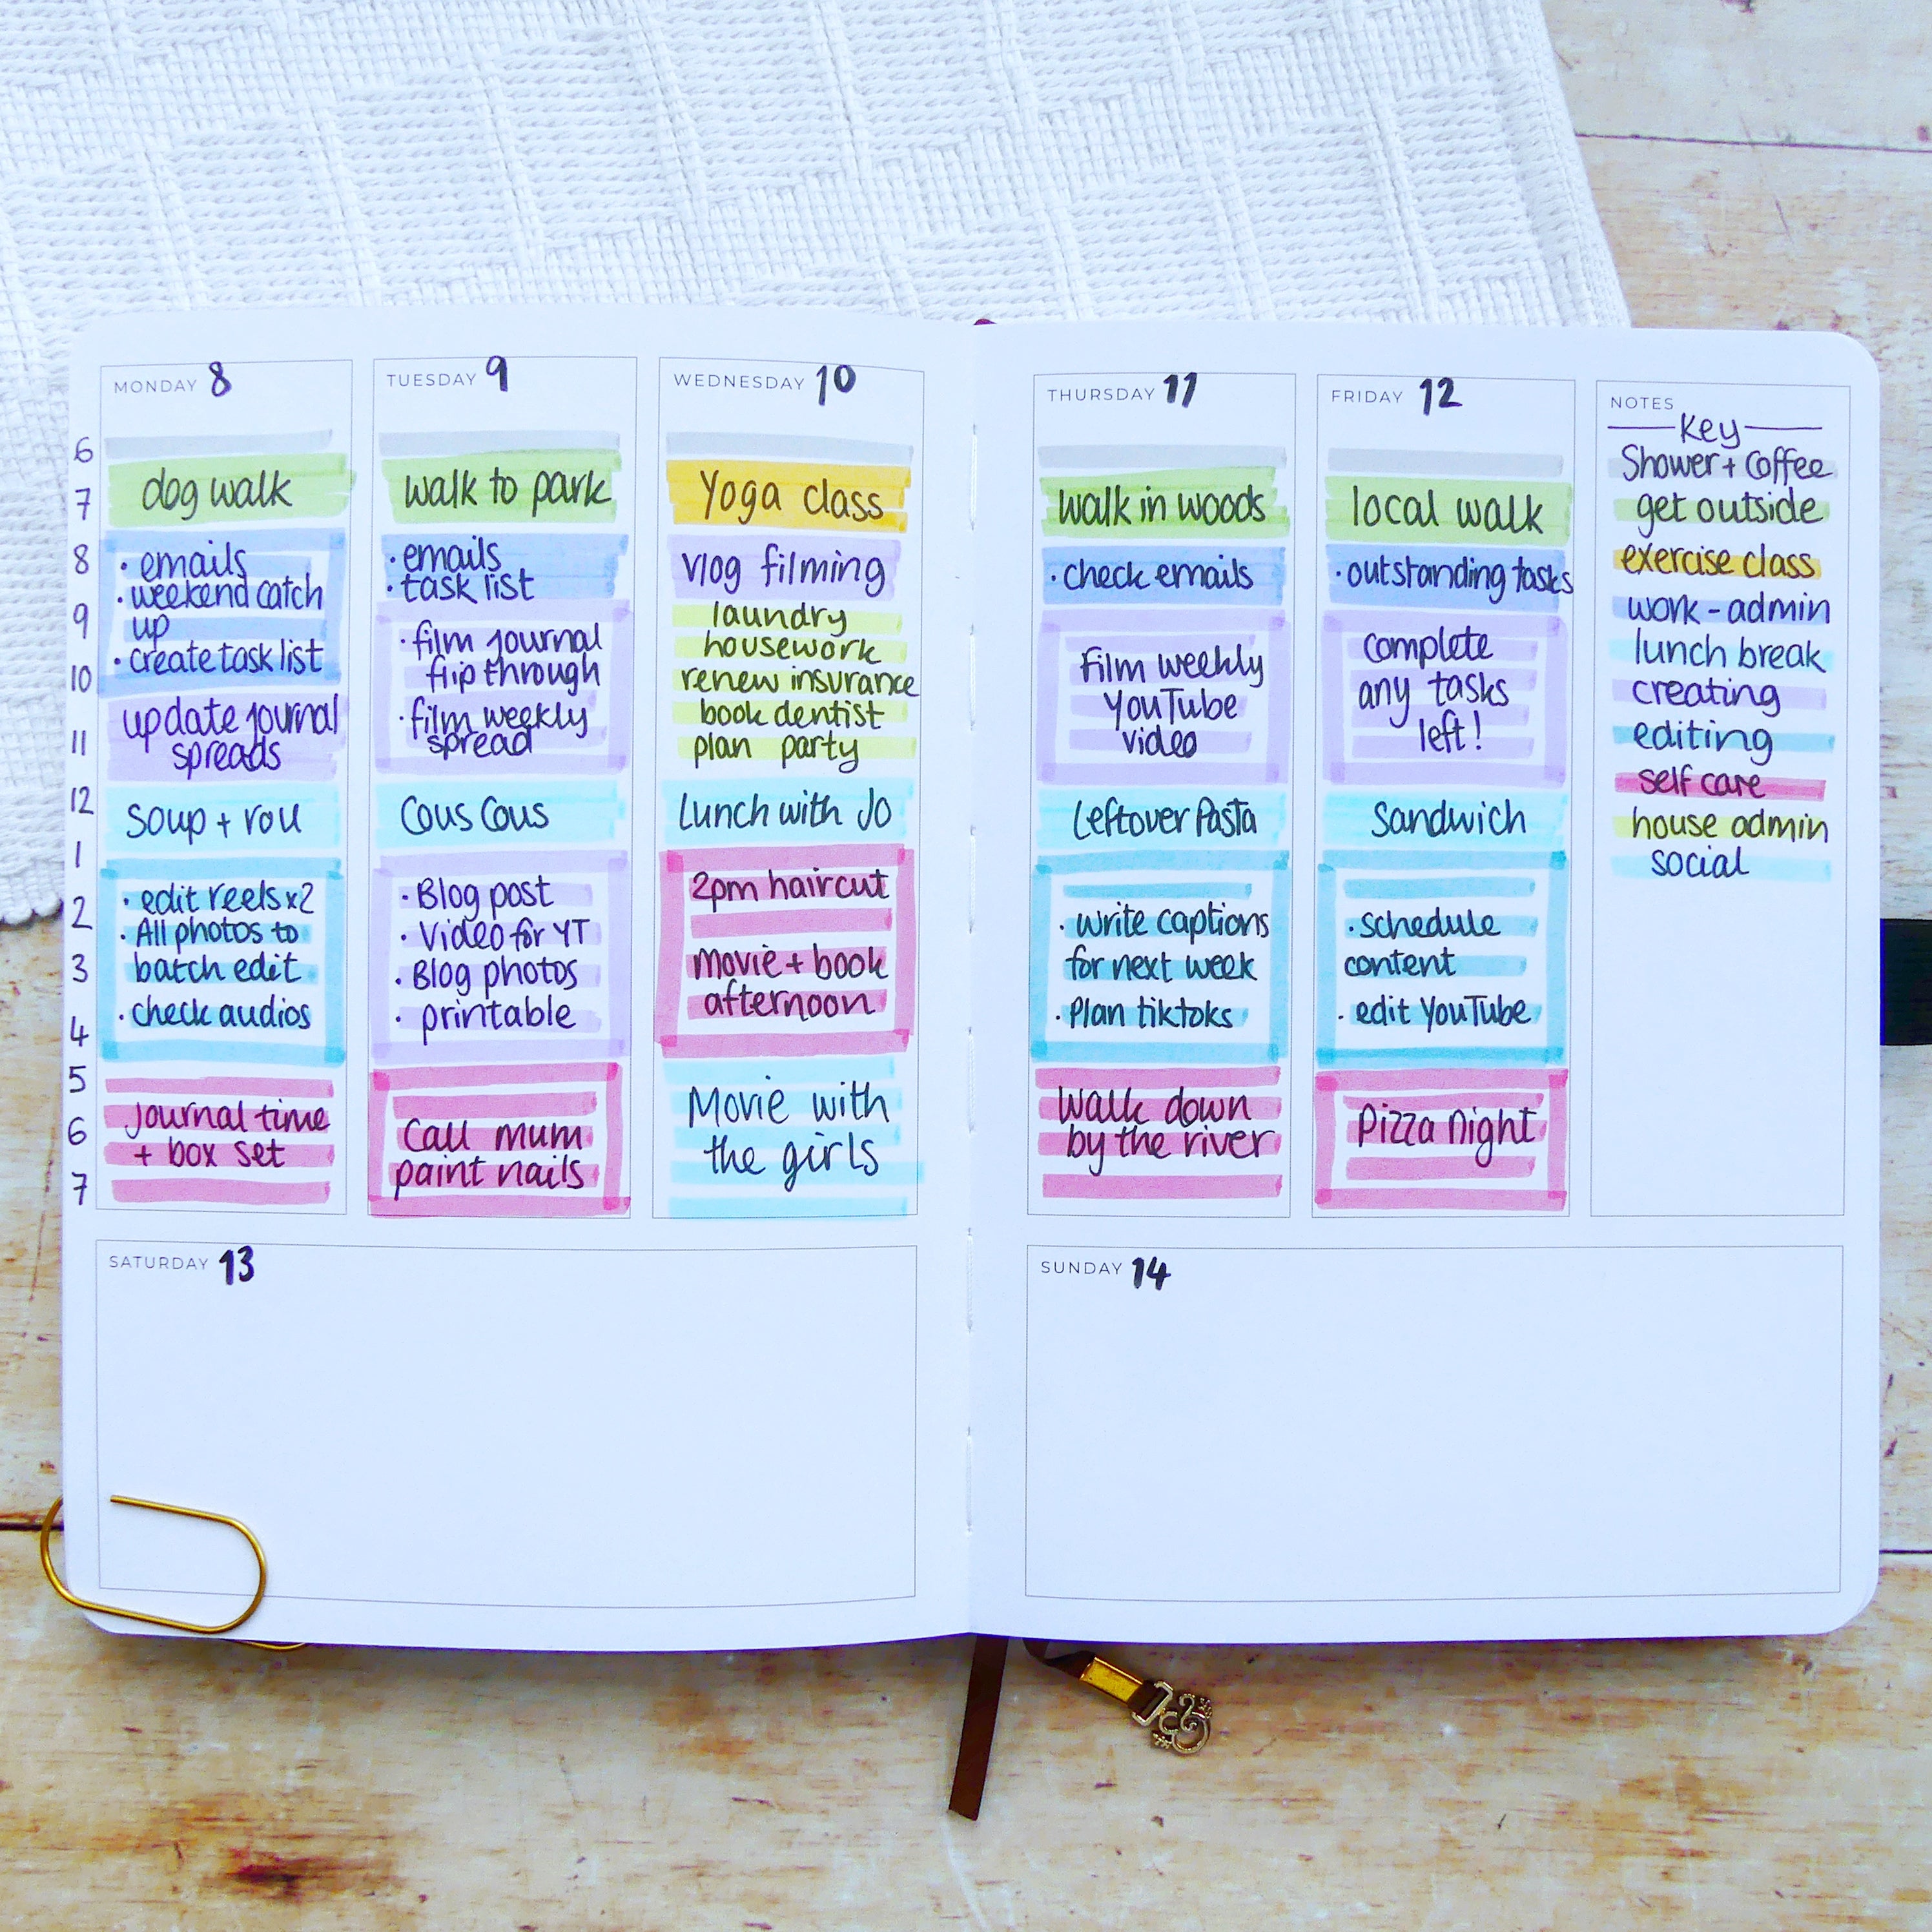 MONDAY 8
6
dog walk
7
8
· emails
· weekend catch
9
up
· create task list
10
update journal
11
spreads
12
Soup + roll
1
· edit reels x2
2
· All photos to
3
batch edit
· check audios
4
5
journal time
6
+ box set
7
TUESDAY 9
walk to park
· emails
· task list
· film journal
flip through
· film weekly
spread
Cous Cous
· Blog post
· Video for YT
· Blog photos
· printable
Call mum
paint nails
WEDNESDAY 10
Yoga class
Vlog filming
laundry
housework
renew insurance
book dentist
plan party
Lunch with Jo
2pm haircut
movie + book
afternoon
Movie with
the girls
THURSDAY 11
walk in woods
· check emails
Film weekly
YouTube
video
Leftover Pasta
· write captions
for next week
· Plan tiktoks
Walk down
by the river
FRIDAY 12
local walk
· outstanding tasks
complete
any tasks
left!
Sandwich
· schedule
content
· edit YouTube
Pizza night
NOTES
Key
Shower + Coffee
get outside
exercise class
work - admin
lunch break
creating
editing
self care
house admin
social
SATURDAY 13
SUNDAY 14